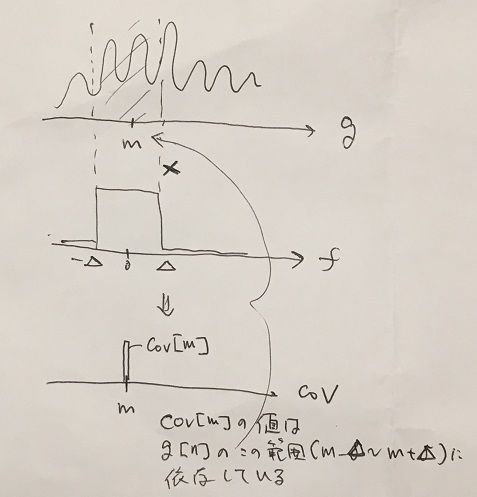 g
m
×
-Δ 0 Δ f
Cov[m]
m
Cov
Cov[m]の値は
g[n]のこの範囲(m-Δ~m+Δ)に
依存している